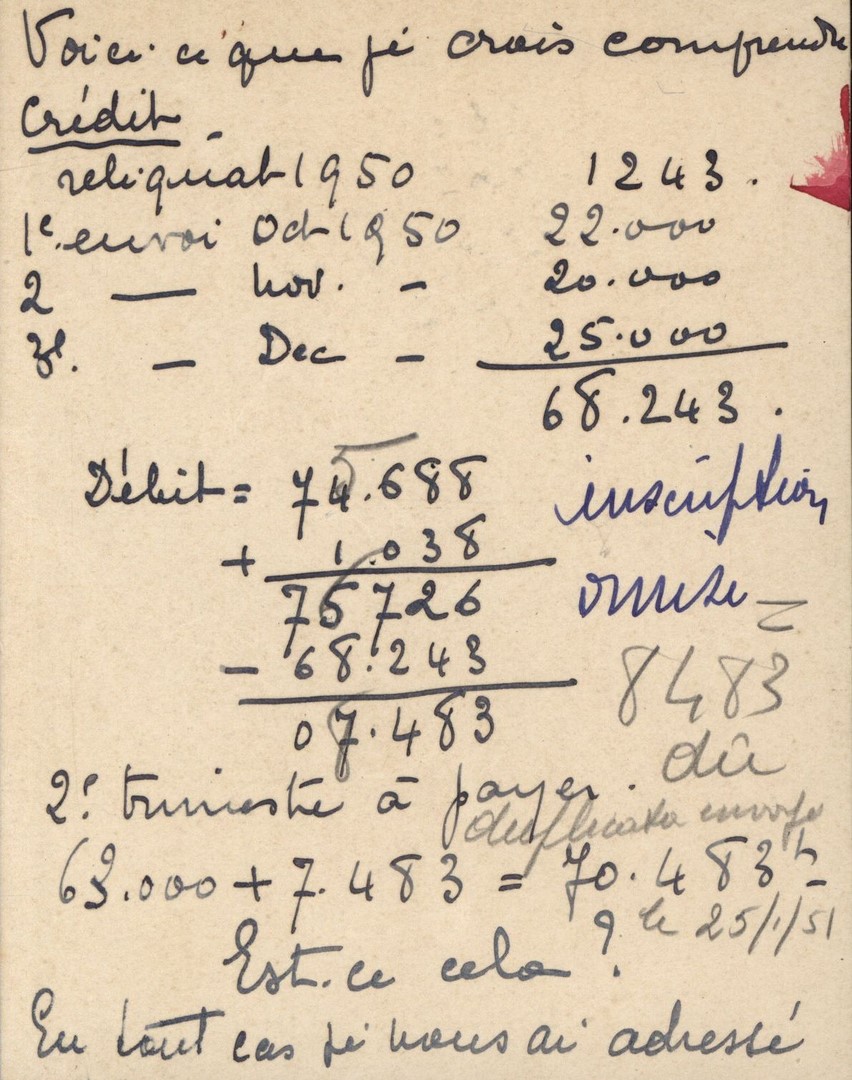 Voici ce que je crois comprendre
Crédit -
reliquat 1950 1243.
1e. envoi Oct 1950 22.000
2 — nov. - 20.000
3e. - Dec - 25.000
68.243.
Débit = 74.688 inscription
+ 1.038 omise =
75726
- 68.243 8483
07.483 dû
2e. trimestre à payer.
duplicata envoyé
63.000 + 7.483 = 70.483 fr
le 25/1/51
Est-ce cela ?
En tout cas je vous ai adressé